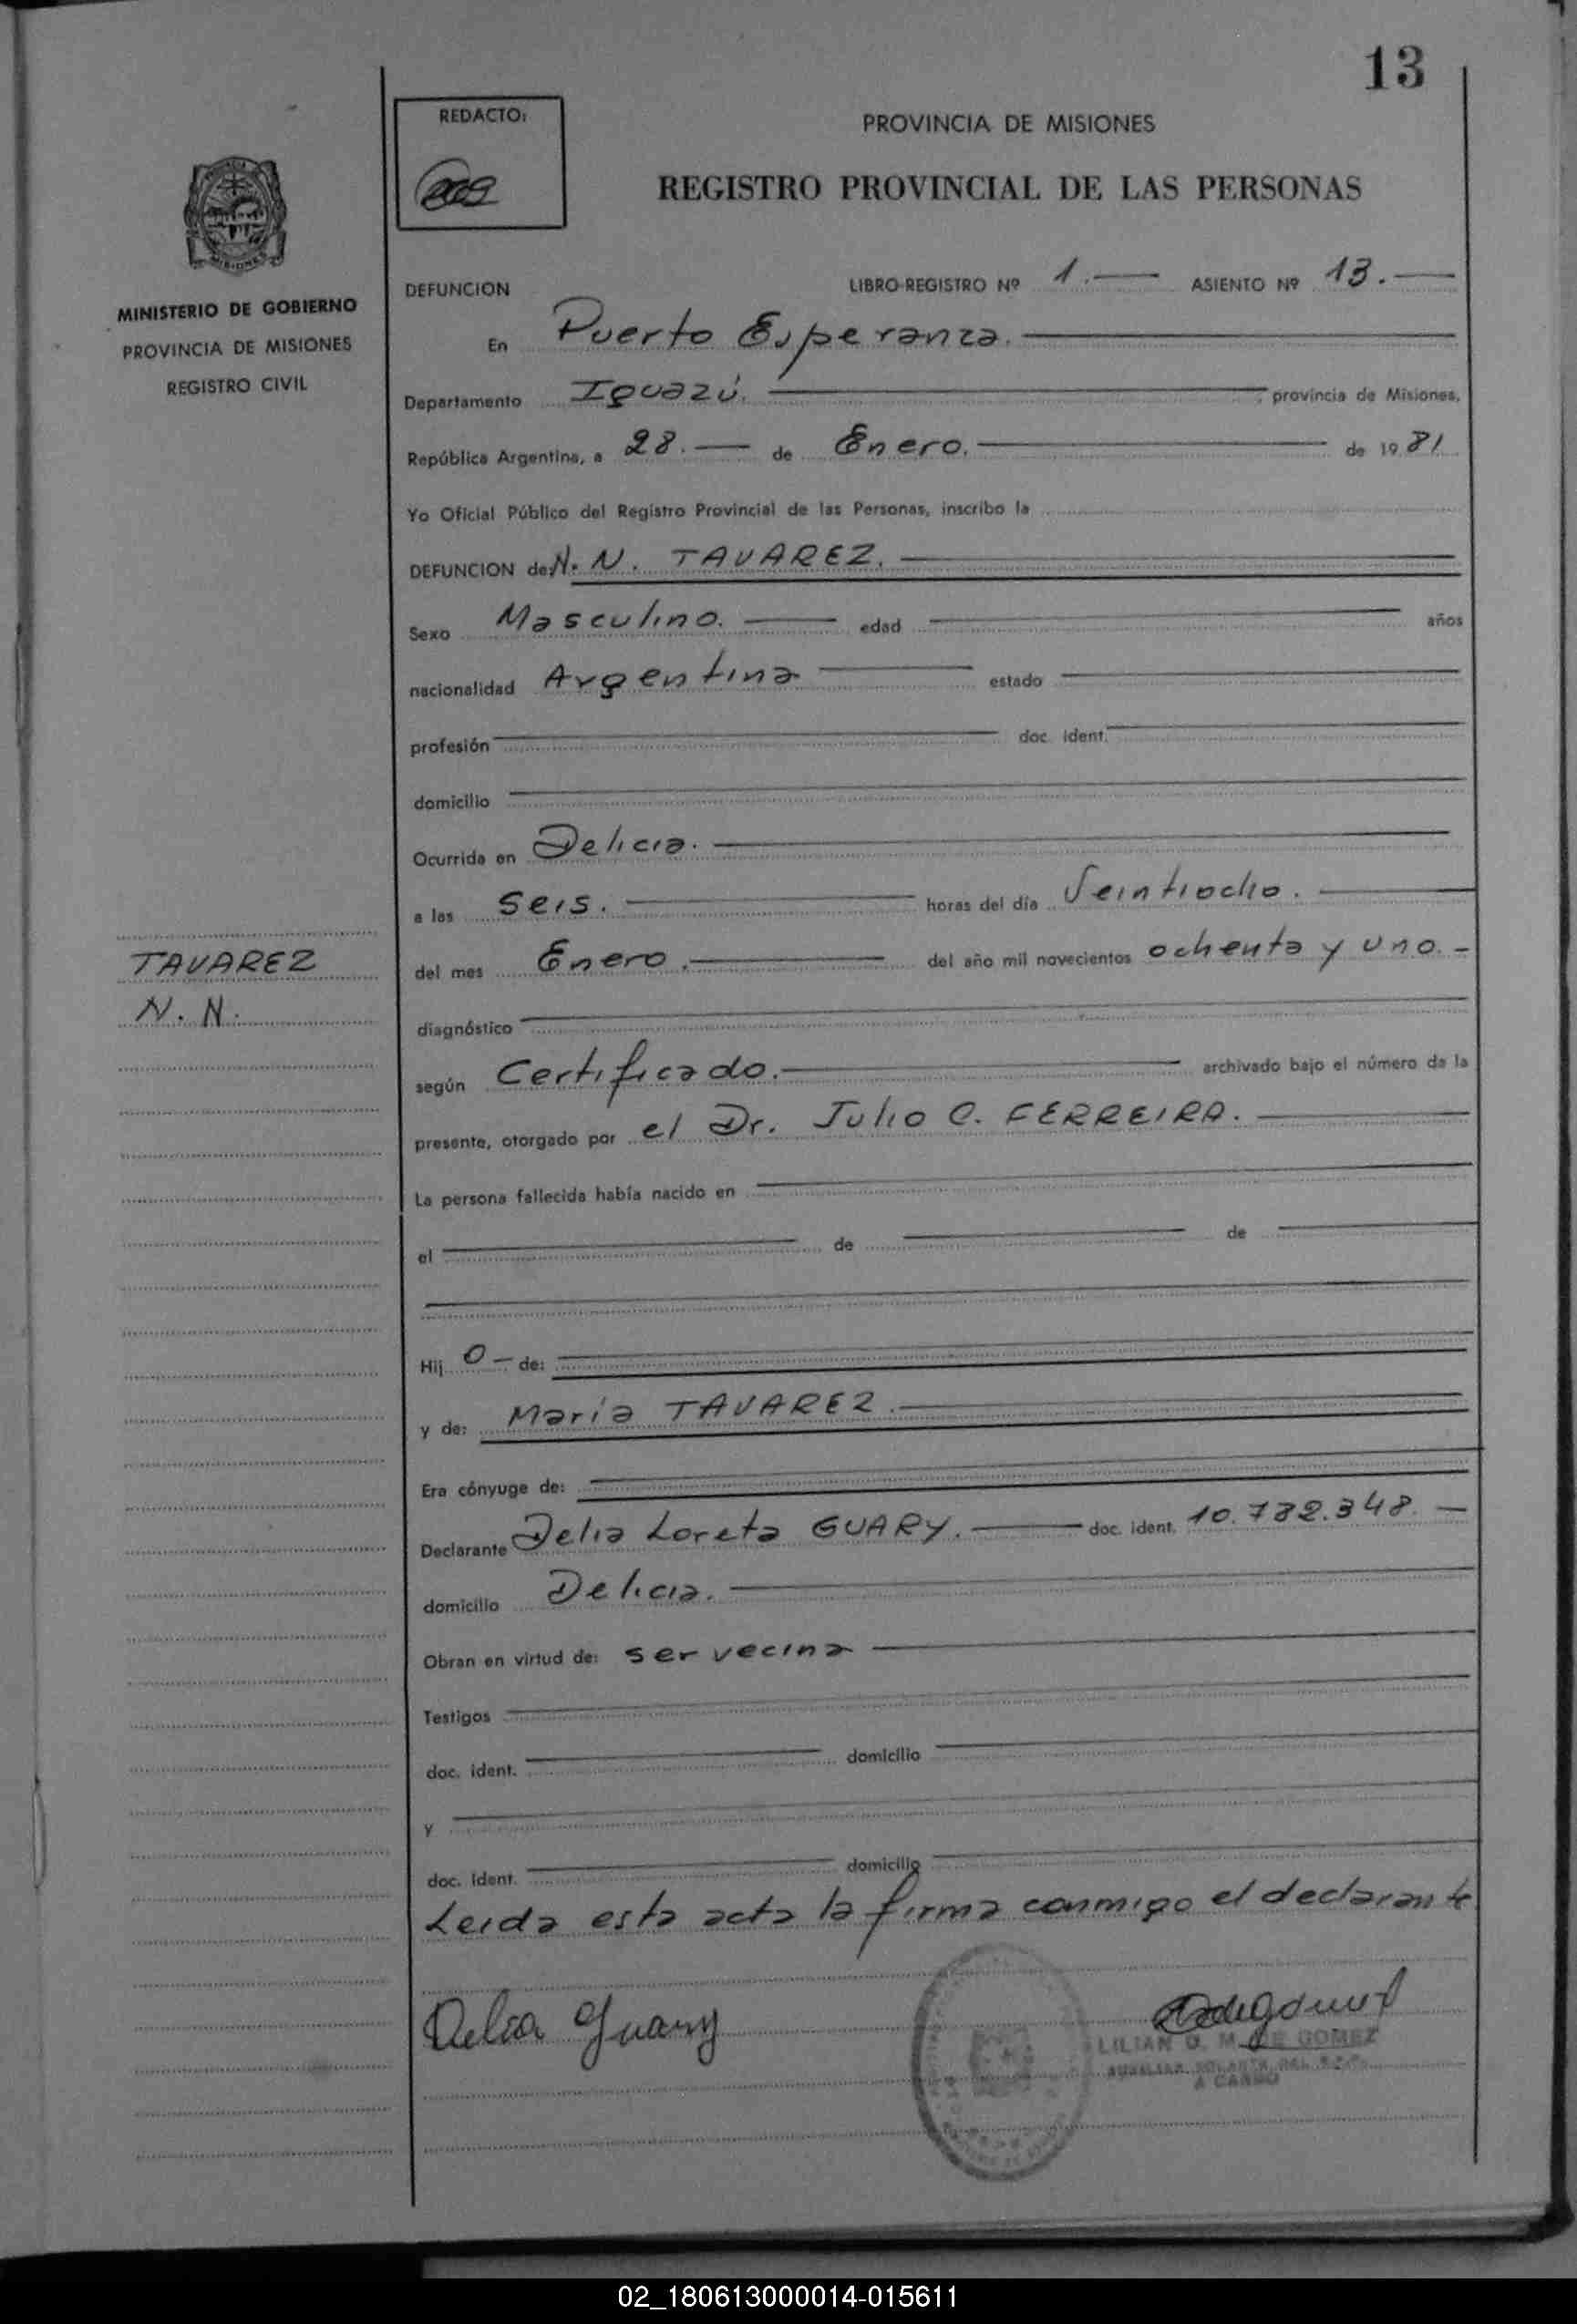 13
REDACTO:
PROVINCIA DE MISIONES
REGISTRO PROVINCIAL DE LAS PERSONAS
MISIONES
MINISTERIO DE GOBIERNO
PROVINCIA DE MISIONES
REGISTRO CIVIL
DEFUNCION LIBRO-REGISTRO Nº 1.— ASIENTO Nº 13.—
En Puerto Esperanza.—
Departamento Iguazú.— , provincia de Misiones,
República Argentina, a 28.— de Enero.— de 1981
Yo Oficial Público del Registro Provincial de las Personas, inscribo la
DEFUNCION de: N. N. TAVAREZ.—
Sexo Masculino.— edad — años
nacionalidad Argentina — estado —
profesión — doc. ident. —
domicilio —
Ocurrida en Delicia.—
a las seis.— horas del día Veintiocho.—
del mes Enero.— del año mil novecientos ochenta y uno.-
diagnóstico —
según Certificado.— archivado bajo el número de la
presente, otorgado por el Dr. Julio C. FERREIRA.—
La persona fallecida había nacido en —
el — de — de —
Hij o — de: —
y de: María TAVAREZ.—
Era cónyuge de: —
Declarante Delia Loreta GUARY.— doc. ident. 10.782.348.—
domicilio Delicia.—
Obran en virtud de: ser vecina —
Testigos —
doc. ident. — domicilio —
y —
doc. ident. — domicilio —
Leida esta acta la firma conmigo el declarante
Delia Guary
LILIAN G. M. DE GOMEZ
A CARGO
TAVAREZ
N. N.
02_180613000014-015611